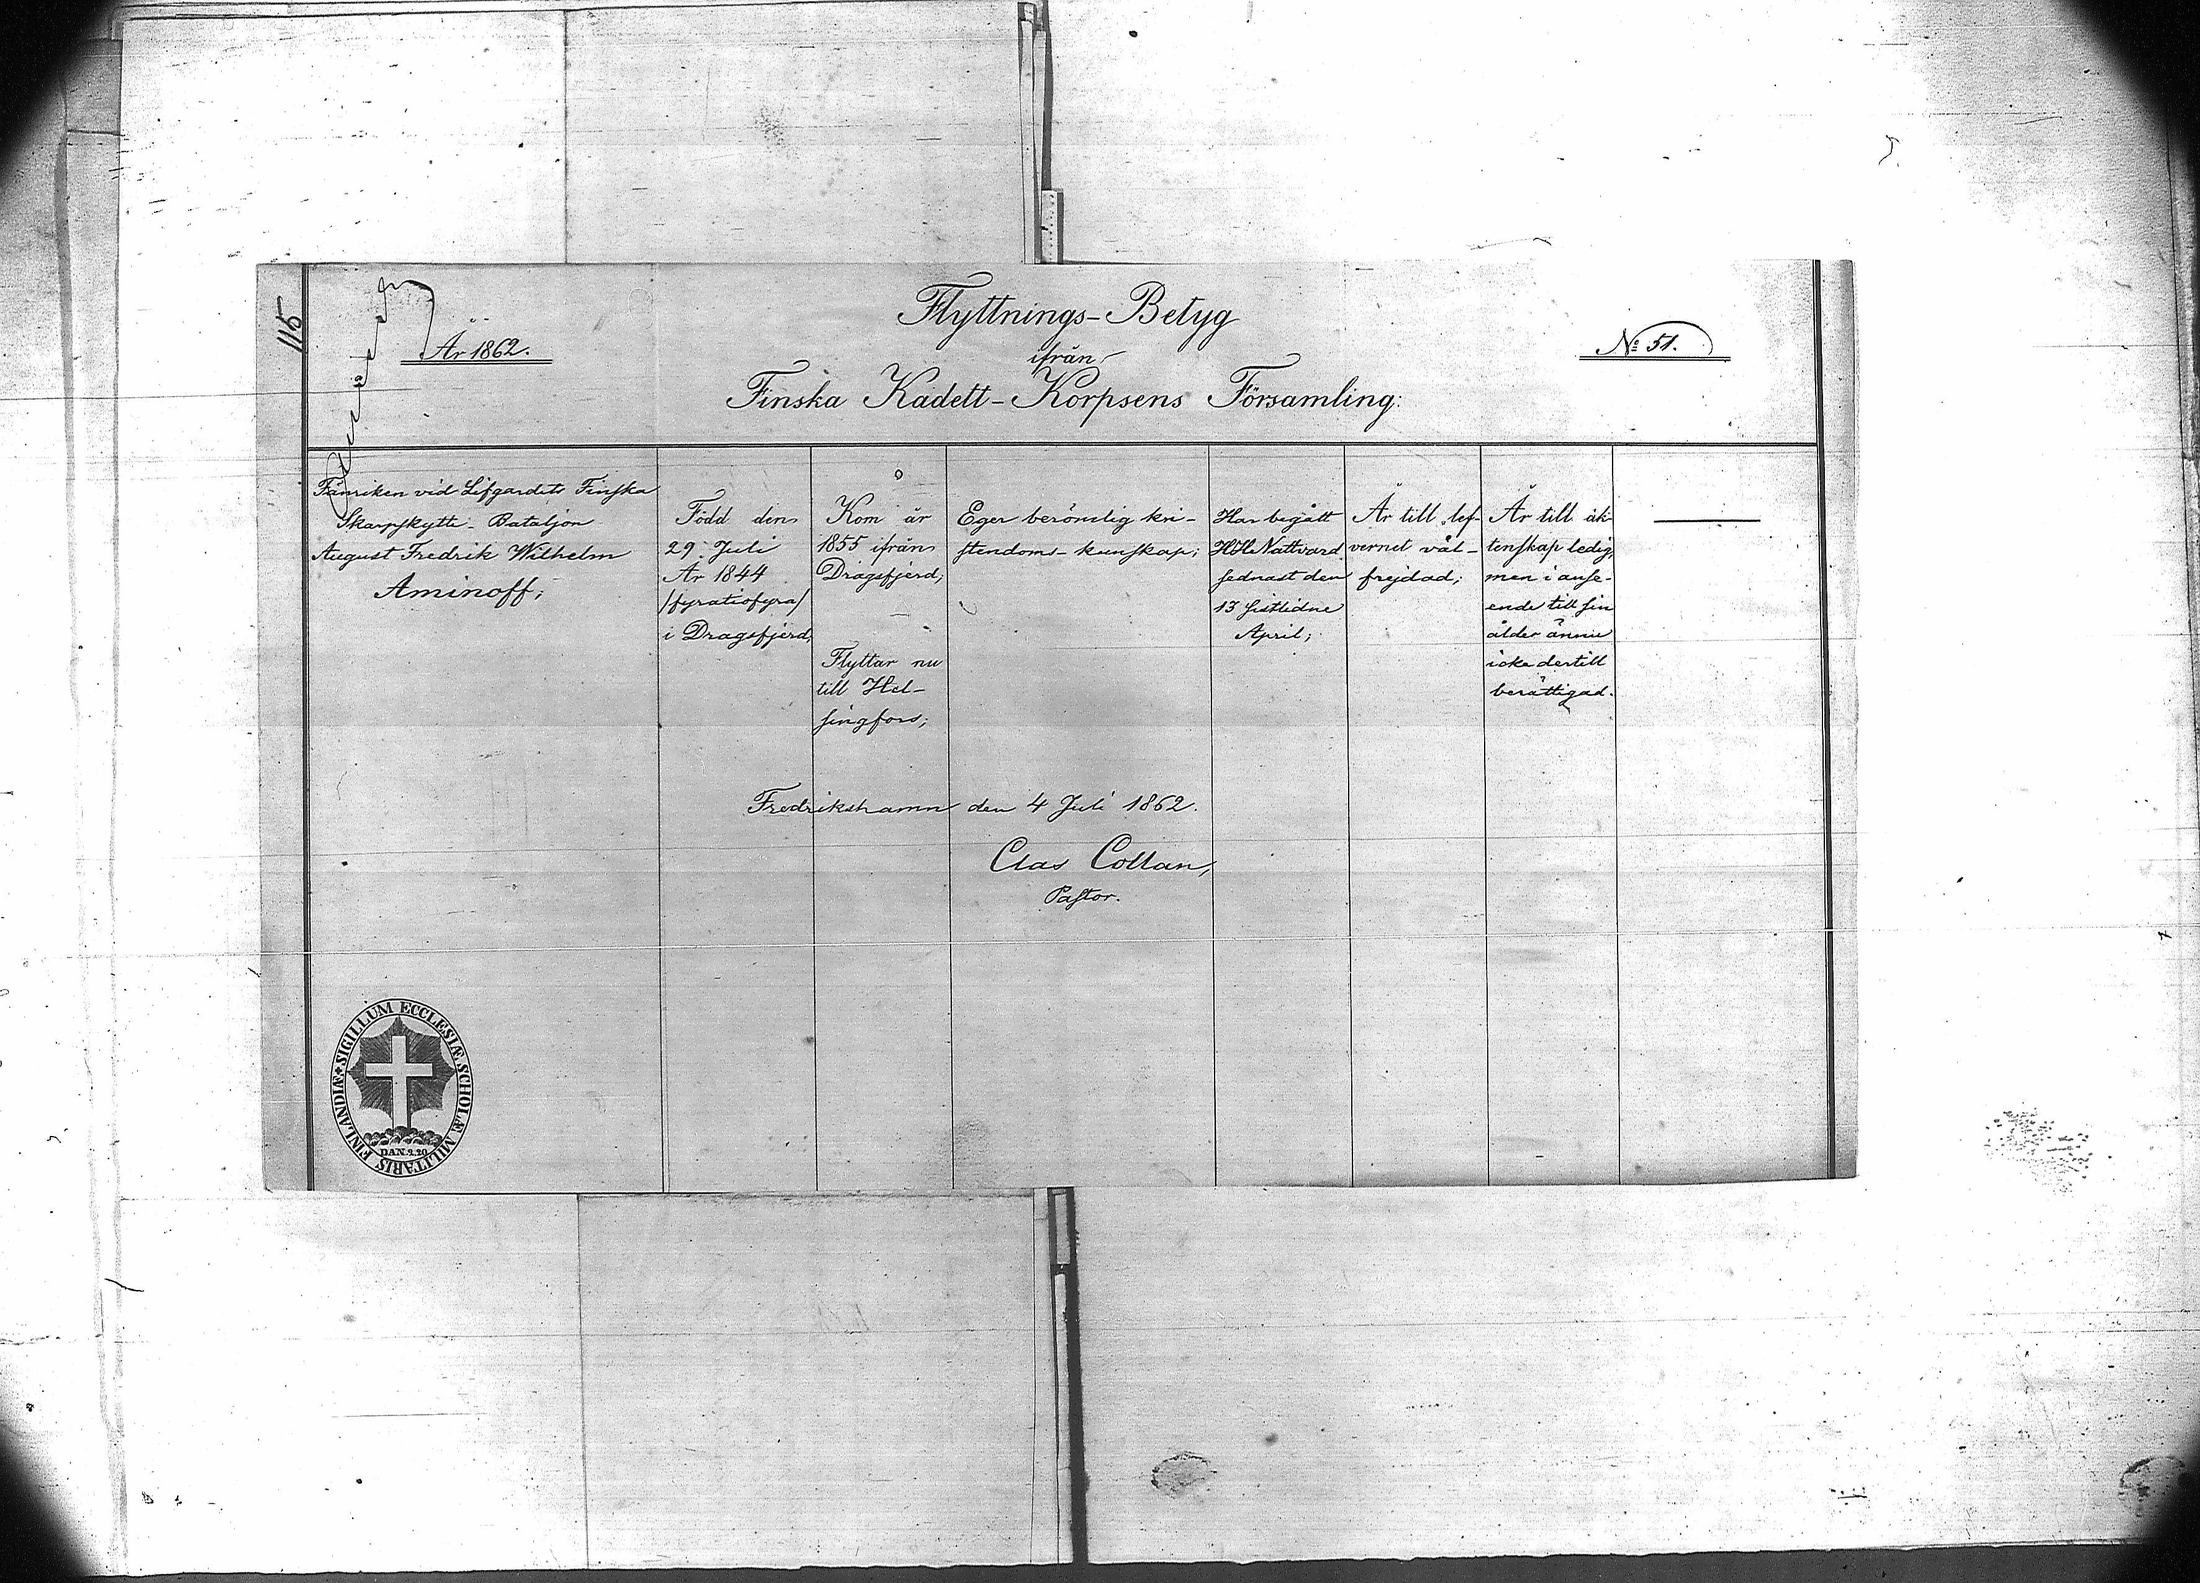 115
År 1862.
Flyttnings-Betyg
ifrån
Finska Kadett-Korpsens Församling:
№ 51.
Fänriken vid Lifgardets Finska
Skarpskytte-Bataljon
August Fredrik Wilhelm
Aminoff;
Född den
29 Juli
År 1844
/fyratiofyra/
i Dragsfjerd;
Kom år
1855 ifrån
Dragsfjerd;
Flyttar nu
till Hel-
singfors;
Eger berömlig kri-
stendoms-kunskap;
Har begått
H.H. Nattvard
sednast den
13 sistlidne
April;
Är till lef-
vernet väl-
frejdad;
Är till äk-
tenskap ledig,
men i anse-
ende till sin
ålder ännu
icke dertill
berättigad.
Fredrikshamn den 4 Juli 1862.
Clas Collan,
Pastor.
SIGILLUM ECCLESIÆ SCHOLÆ MILITARIS FINLANDIÆ
DAN. 2. 20